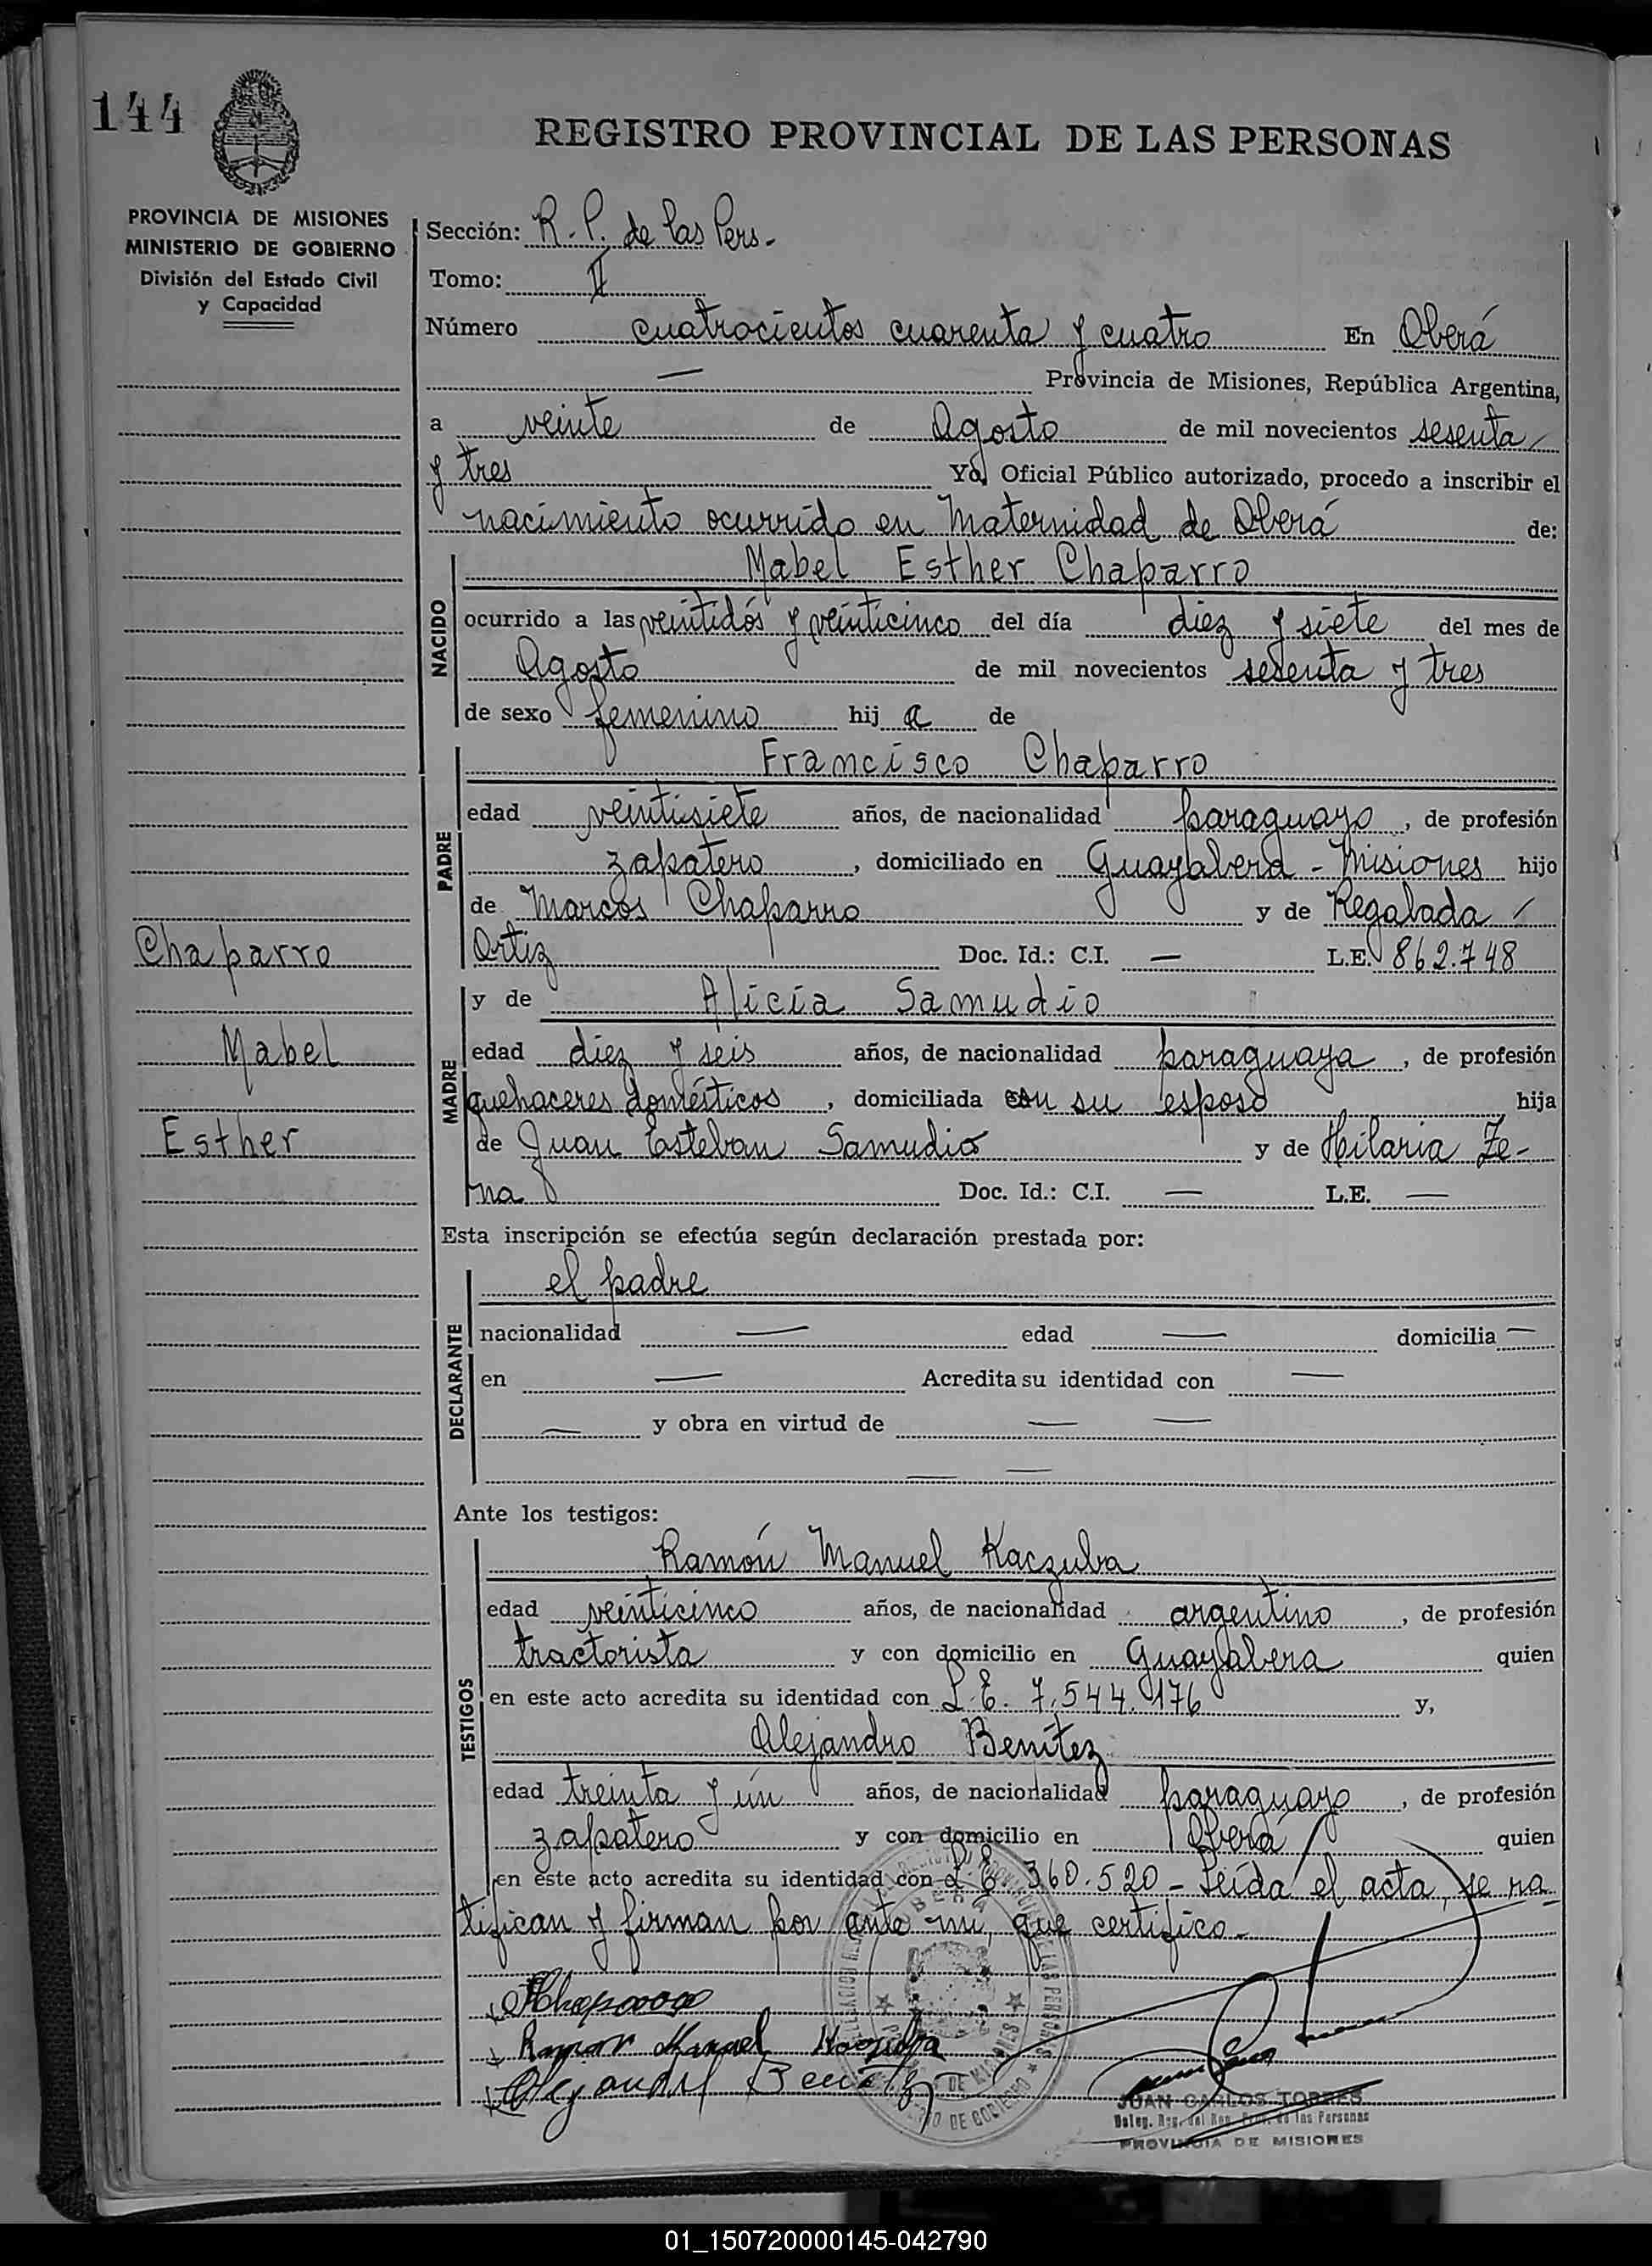 144
REGISTRO PROVINCIAL DE LAS PERSONAS
PROVINCIA DE MISIONES
MINISTERIO DE GOBIERNO
División del Estado Civil
y Capacidad
Sección: R. P. de las Pers.
Tomo: II
Número cuatrocientos cuarenta y cuatro En Oberá
— Provincia de Misiones, República Argentina,
a veinte de Agosto de mil novecientos sesenta
y tres Yo, Oficial Público autorizado, procedo a inscribir el
nacimiento ocurrido en Maternidad de Oberá de:
NACIDO
Mabel Esther Chaparro
ocurrido a las veintidós y veinticinco del día diez y siete del mes de
Agosto de mil novecientos sesenta y tres
de sexo femenino hij a de
PADRE
Francisco Chaparro
edad veintisiete años, de nacionalidad paraguayo, de profesión
zapatero, domiciliado en Guayabera - Misiones hijo
de Marcos Chaparro y de Regalada
Ortiz Doc. Id.: C.I. — L.E. 862.748
Chaparro
Mabel
Esther
MADRE
y de Alicia Samudio
edad diez y seis años, de nacionalidad paraguaya, de profesión
quehaceres domésticos, domiciliada con su esposo hija
de Juan Esteban Samudio y de Hilaria Ze-
na Doc. Id.: C.I. — L.E. —
Esta inscripción se efectúa según declaración prestada por:
DECLARANTE
el padre
nacionalidad — edad — domicilia —
en — Acredita su identidad con —
— y obra en virtud de — —
— —
Ante los testigos:
TESTIGOS
Ramón Manuel Kaczuba
edad veinticinco años, de nacionalidad argentino, de profesión
tractorista y con domicilio en Guayabera quien
en este acto acredita su identidad con L.E. 7.544.176 y,
Alejandro Benítez
edad treinta y un años, de nacionalidad paraguayo, de profesión
zapatero y con domicilio en Oberá quien
en este acto acredita su identidad con L.E. 360.520 - Leída el acta, se ra
tifican y firman por ante mi, que certifico.
Ramon Manuel Kaczuba
Alejandro Benitez
JUAN CARLOS TORRES
Deleg. Reg. del Reg. Prov. de las Personas
PROVINCIA DE MISIONES
01_150720000145-042790